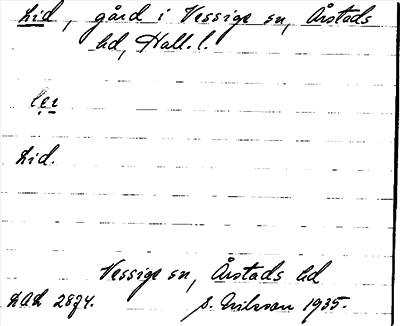 Lid, gård i Vessige sn, Årstads
hd, Hall. l.
Lid.
Vessige sn, Årstads hd
S. Nilsson 1935.